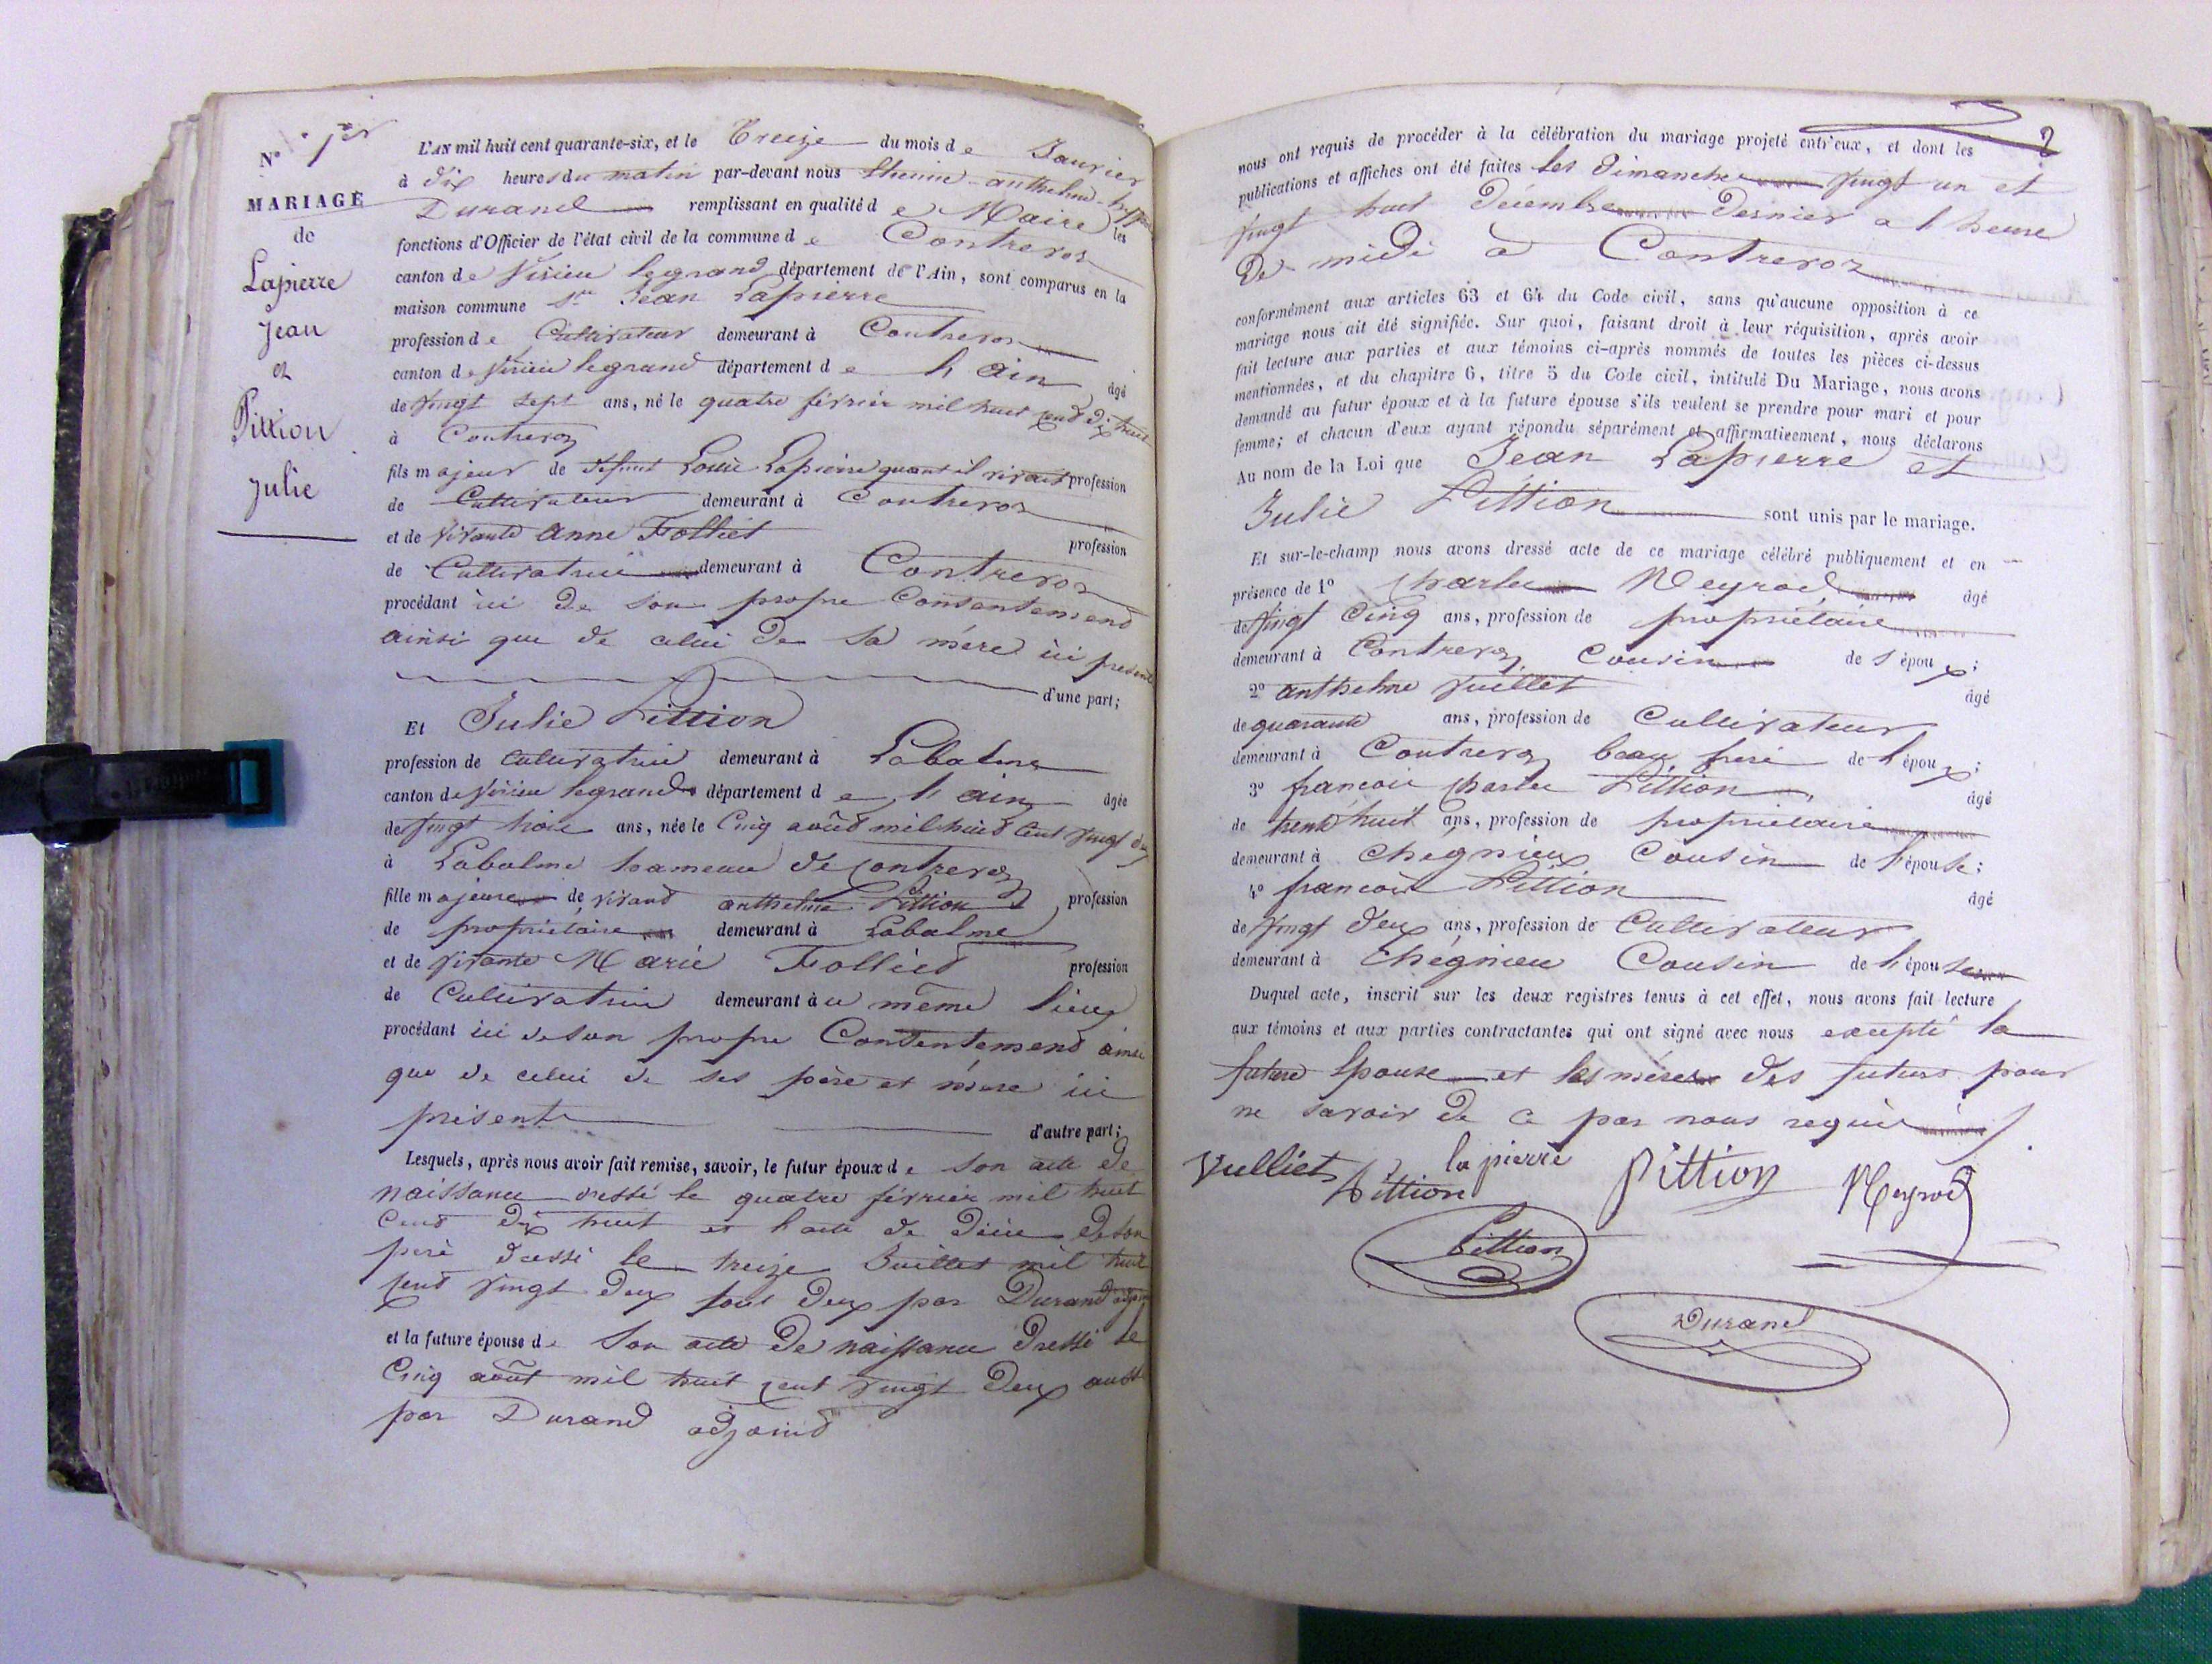 N° 1er
MARIAGE
de
Lapierre
Jean
et
Pittion
Julie
L'AN mil huit cent quarante-six, et le Treize du mois de Janvier
à dix heures du matin par-devant nous Etienne-anthelme
Durand remplissant en qualité de Maire les
fonctions d'Officier de l'état civil de la commune de Contrevoz
canton de Virieu legrand département de l'Ain, sont comparus en la
maison commune sr Jean Lapierre
profession de Cultivateur demeurant à Contrevoz
canton de Virieu legrand département de l'ain âgé
de vingt sept ans, né le quatre février mil huit cent dix huit
à Contrevoz
fils majeur de defunt Louis Lapierre quant il vivait profession
de Cultivateur demeurant à Contrevoz
et de vivante Anne Folliet profession
de Cultivatrice demeurant à Contrevoz
procédant ici de son propre Consentement
ainsi que de celui de sa mère ici presente
d'une part;
Et Julie Pittion
profession de Cultivatrice demeurant à Labalme
canton de Virieu legrand département de l'ain âgée
de vingt trois ans, née le Cinq août mil huit cent vingt deux
à Labalme hameau de Contrevoz
fille majeure de vivant anthelme Pittion profession
de propriétaire demeurant à Labalme
et de vivante Marie Folliet profession
de Cultivatrice demeurant à u même lieu
procédant ici de son propre Consentement ainsi
que de celui de ses père et mère ici
présents
d'autre part;
Lesquels, après nous avoir fait remise, savoir, le futur époux de son acte de
naissance dressé le quatre février mil huit
cent dix huit et l'acte de décès de son
père dressé le treize Juillet mil huit
cent vingt deux tous deux par Durand adjoint
et la future épouse de son acte de naissance dressé le
Cinq août mil huit cent vingt deux aussi
par Durand adjoint
2
nous ont requis de procéder à la célébration du mariage projeté entr'eux, et dont les
publications et affiches ont été faites les dimanches vingt un et
vingt huit décembre dernier a l'heure
de midi à Contrevoz
conformément aux articles 63 et 64 du Code civil, sans qu'aucune opposition à ce
mariage nous ait été signifiée. Sur quoi, faisant droit à leur réquisition, après avoir
fait lecture aux parties et aux témoins ci-après nommés de toutes les pièces ci-dessus
mentionnées, et du chapitre 6, titre 5 du Code civil, intitulé Du Mariage, nous avons
demandé au futur époux et à la future épouse s'ils veulent se prendre pour mari et pour
femme; et chacun d'eux ayant répondu séparément et affirmativement, nous déclarons
Au nom de la Loi que Jean Lapierre et
Julie Pittion sont unis par le mariage.
Et sur-le-champ nous avons dressé acte de ce mariage célébré publiquement et en
présence de 1° Charles Meyrod âgé
de vingt Cinq ans, profession de propriétaire
demeurant à Contrevoz Cousin de l'époux;
2° anthelme Vuillet âgé
de quarante ans, profession de Cultivateur
demeurant à Contrevoz beau frere de l'époux;
3° francois Charles Pittion âgé
de trente huit ans, profession de propriétaire
demeurant à Chegnieux Cousin de l'épouse;
4° francois Pittion âgé
de vingt deux ans, profession de Cultivateur
demeurant à Chégnieu Cousin de l'épouse
Duquel acte, inscrit sur les deux registres tenus à cet effet, nous avons fait lecture
aux témoins et aux parties contractantes qui ont signé avec nous excepté la
future Epouse et les mères des futurs pour
ne savoir de ce par nous requis
Vulliet Pittion la pierre Pittion Meyrod
Pittion
Durand